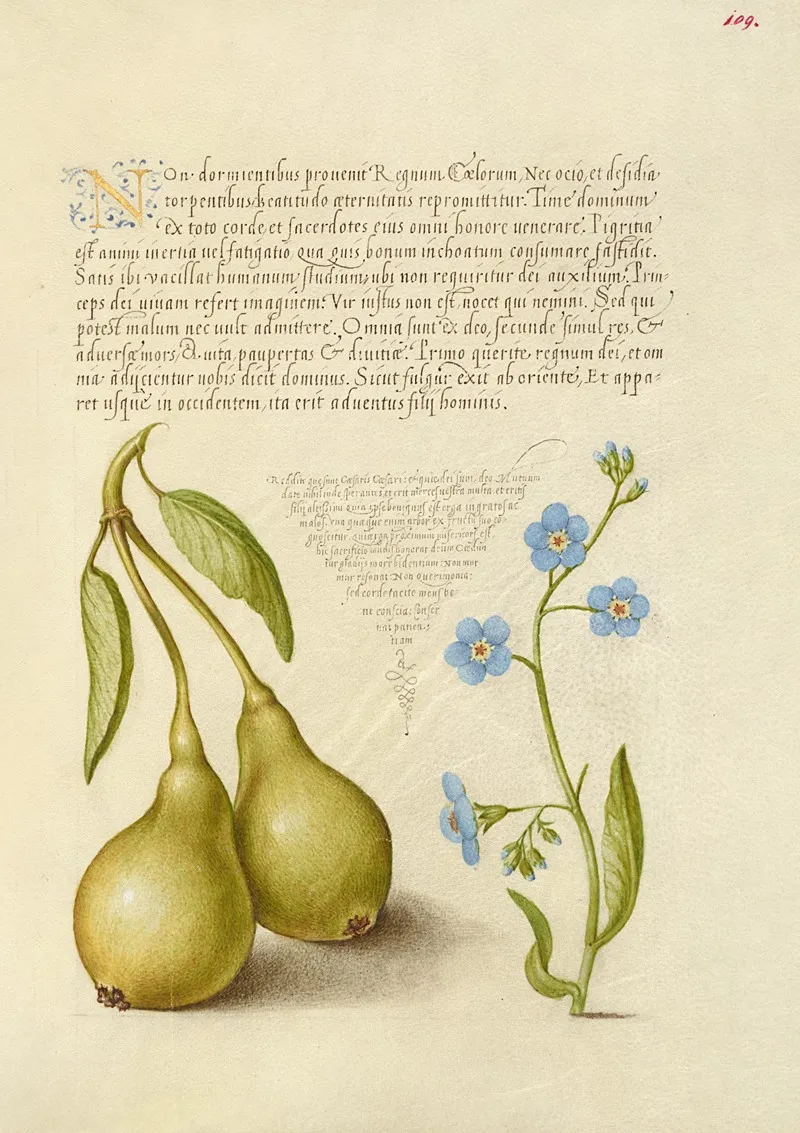 109.
NOn dormientibus prouenit Regnum Cælorum, Nec ocio, et desidia
torpentibus beatitudo æternitatis repromittitur. Time dominum
ex toto corde, et sacerdotes eius omni honore uenerare. Pigritia
est animi inertia uel fatigatio, qua quis bonum inchoatum consumare fastidit.
Satis ibi vacillat humanum studium, ubi non requiritur dei auxilium. Prin-
ceps dei uiuam refert imaginem. Vir iustus non est, nocet qui nemini. Sed qui
potest malum nec uult admittere. Omnia sunt ex deo, secunde simul res, &
aduersæ mors, & uita, paupertas & diuitiæ. Primo querite regnum dei, et om
nia adijcientur uobis dicit dominus. Sicut fulgur exit ab oriente, Et appa-
ret usque in occidentem, ita erit aduentus filij hominis.
Reddite que sunt Cæsaris Cæsari: et que dei sunt, deo Mutuum
date nihil inde sperantes, et erit merces uestra multa, et eritis
filij altissimi quia ipse benignus est erga ingratos ac
malos. Vna quæque enim arbor ex fructu suo co-
gnoscitur. qui erga proximum misericors est,
hic sacrificio laudis honorat deum Cædun
tur gladijs more bidentium: Non mur
mur resonat: Non querimonia:
sed corde tacito mens be-
ne conscia: conser
uat patien-
tiam